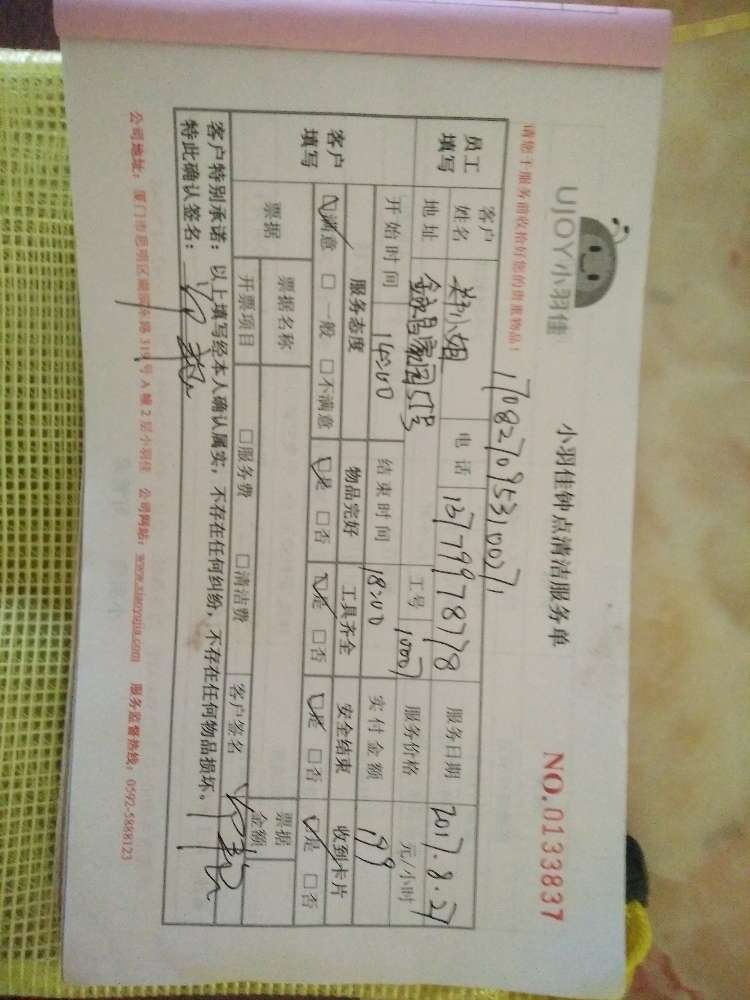 UJOY小羽佳
小羽佳钟点清洁服务单
NO.0133837
请您于服务前收拾好您的贵重物品!
员工填写
客户姓名
小姐
电话
13799978778
服务日期
2017.8.27
地址
工号
10007
服务价格
元/小时
开始时间
14:00
结束时间
18:00
实付金额
199
客户填写
服务态度
物品完好
工具齐全
安全结束
收到卡片
☑满意 □一般 □不满意
☑是 □否
☑是 □否
☑是 □否
☑是 □否
票据
票据名称
客户签名
票据金额
开票项目
□服务费 □清洁费
客户特别承诺:以上填写经本人确认属实,不存在任何纠纷,不存在任何物品损坏。
特此确认签名:
公司地址:厦门市思明区 319号A幢2层小羽佳 公司网站:www.xiaoyujia.com 服务监督热线:0592-5888123